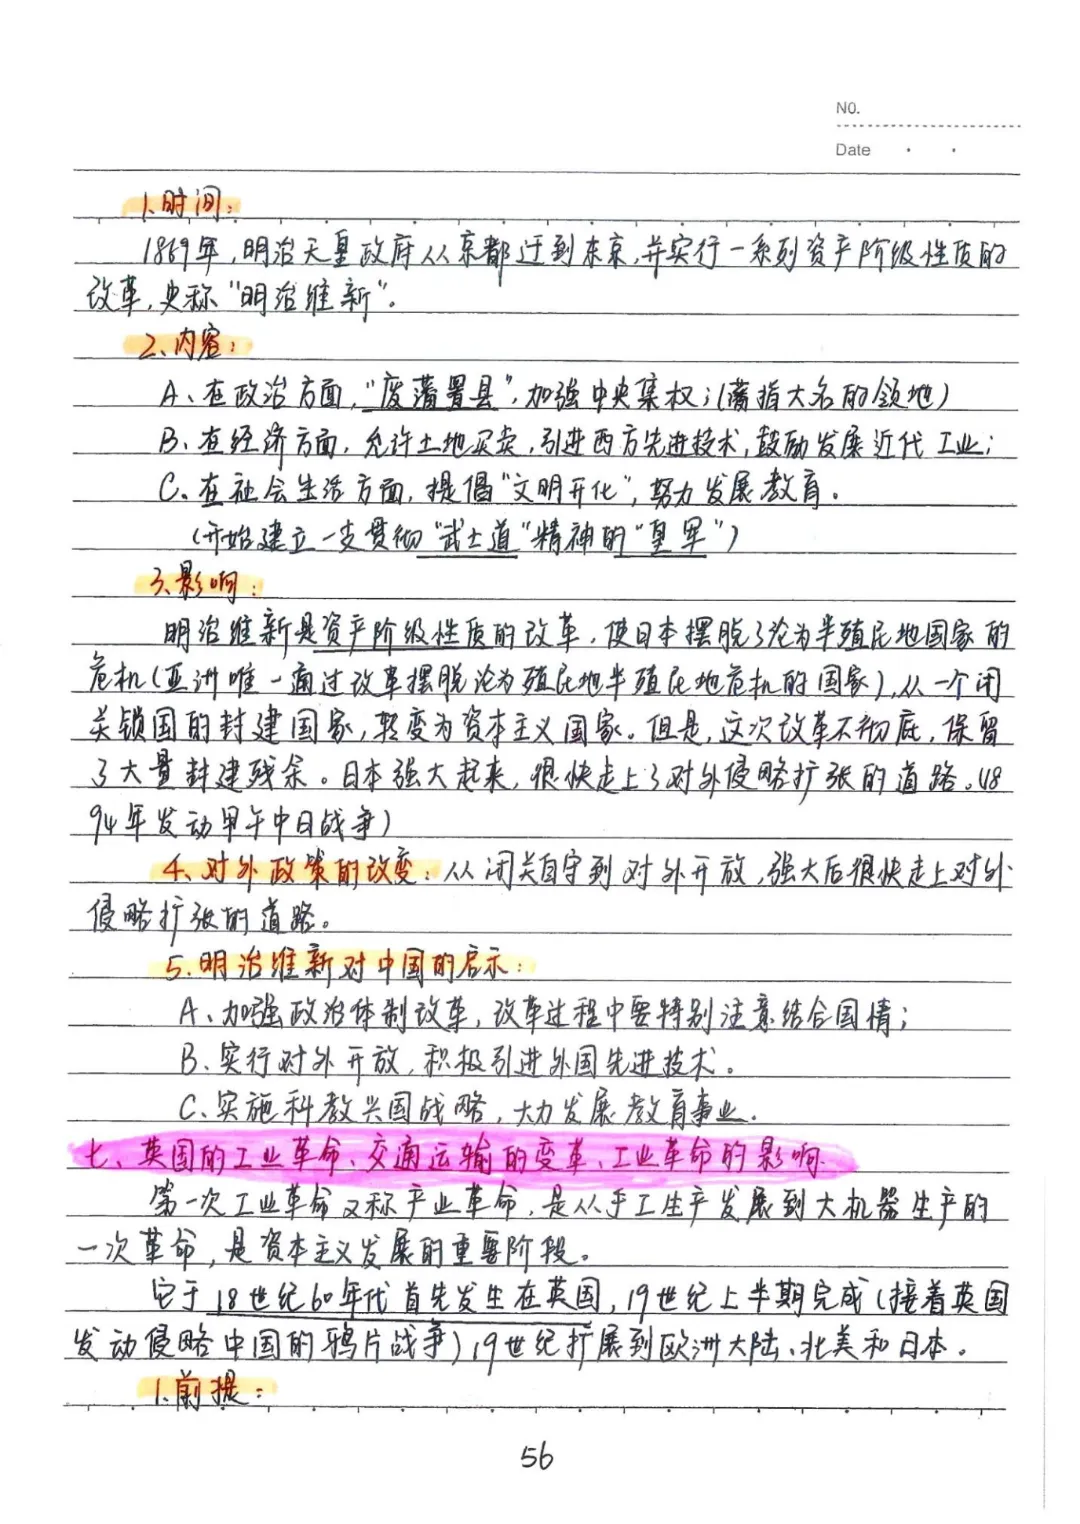 NO.
Date
1、时间：
1869年，明治天皇政府从京都迁到东京，并实行一系列资产阶级性质的
改革，史称“明治维新”。
2、内容：
A、在政治方面，“废藩置县”，加强中央集权；（藩指大名的领地）
B、在经济方面，允许土地买卖，引进西方先进技术，鼓励发展近代工业；
C、在社会生活方面，提倡“文明开化”，努力发展教育。
（开始建立一支贯彻“武士道”精神的“皇军”）
3、影响：
明治维新是资产阶级性质的改革，使日本摆脱了沦为半殖民地国家的
危机（亚洲唯一通过改革摆脱沦为殖民地半殖民地危机的国家），从一个闭
关锁国的封建国家，转变为资本主义国家。但是，这次改革不彻底，保留
了大量封建残余。日本强大起来，很快走上了对外侵略扩张的道路。（18
94年发动甲午中日战争）
4、对外政策的改变：从闭关自守到对外开放，强大后很快走上对外
侵略扩张的道路。
5、明治维新对中国的启示：
A、加强政治体制改革，改革过程中要特别注意结合国情；
B、实行对外开放，积极引进外国先进技术。
C、实施科教兴国战略，大力发展教育事业。
七、英国的工业革命、交通运输的变革、工业革命的影响
第一次工业革命又称产业革命，是从手工生产发展到大机器生产的
一次革命，是资本主义发展的重要阶段。
它于18世纪60年代首先发生在英国，19世纪上半期完成（接着英国
发动侵略中国的鸦片战争）19世纪扩展到欧洲大陆、北美和日本。
1、前提：
56